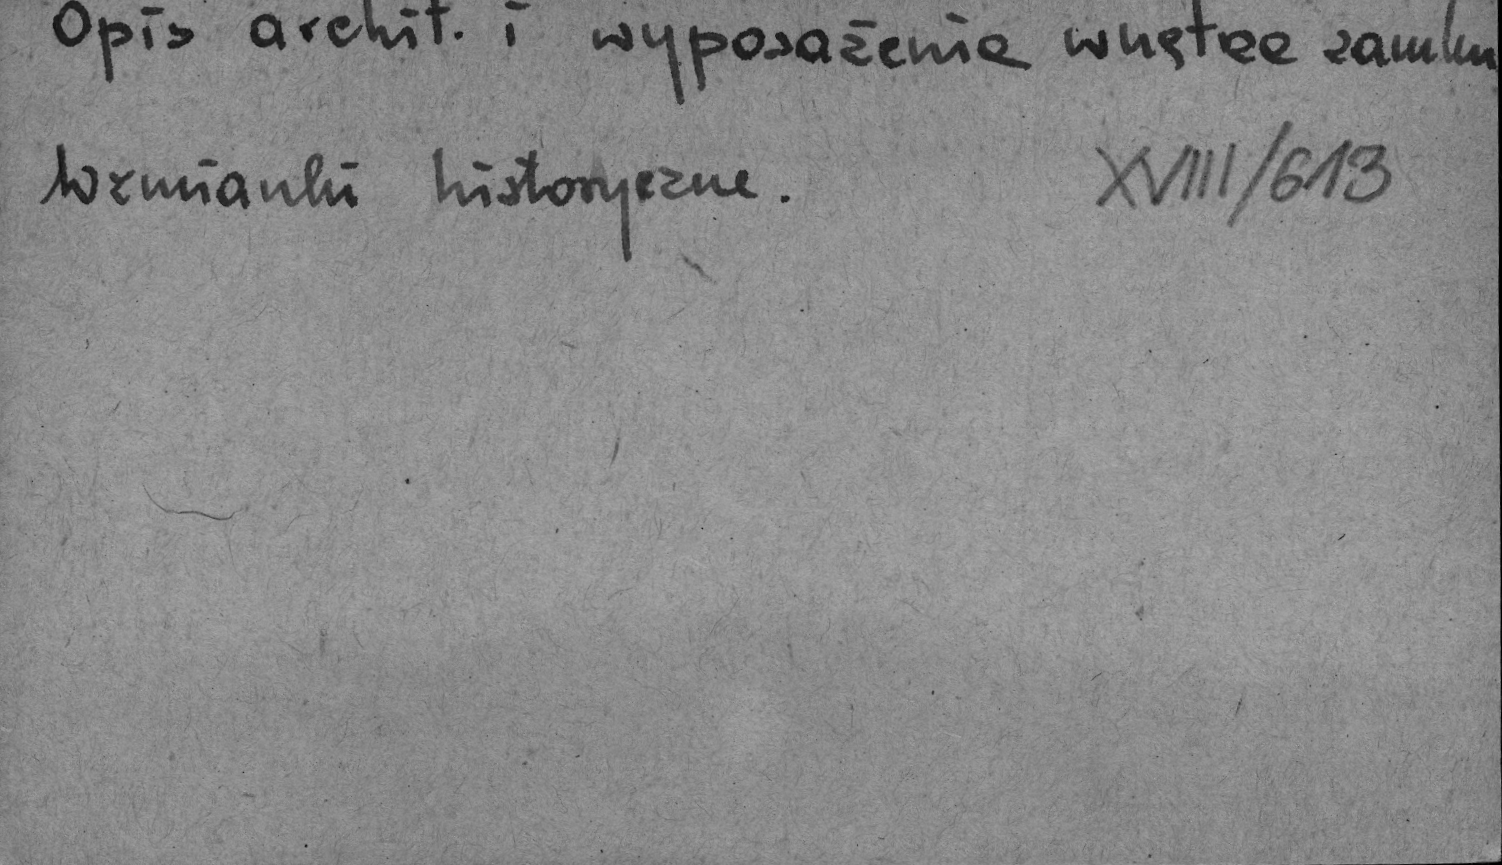 Opis archit. i wyposażenie wnętrz zamku
Wzmianki historyczne. XVIII/613